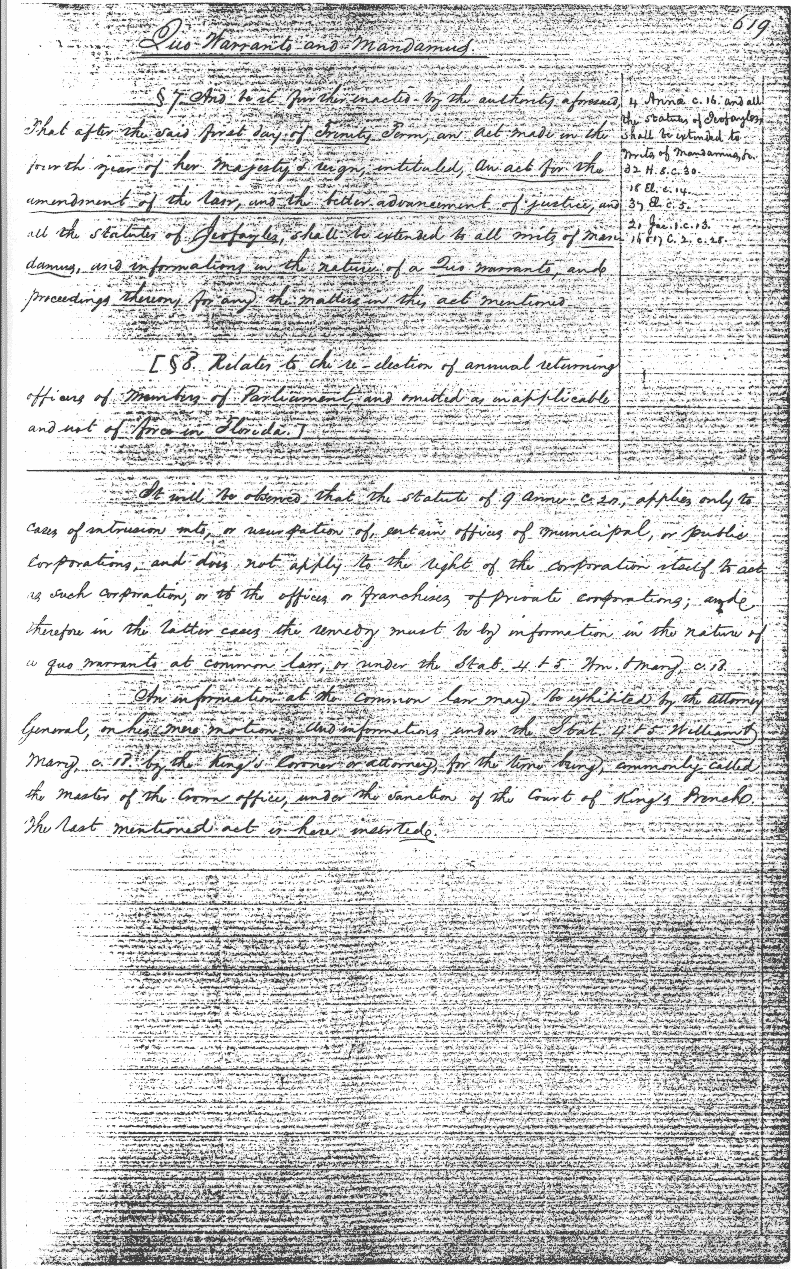 619
Quo Warranto and Mandamus.
§ 7. And be it further enacted by the authority aforesaid,
That after the said first day of Trinity Term, an act made in the
fourth year of her Majesty's reign, intituled, An act for the
amendment of the law, and the better advancement of justice, and
all the statutes of Jeofayles, shall be extended to all writs of Man
damus, and informations in the nature of a Quo warranto, and
proceedings thereon, for any the matters in this act mentioned.
4 Anna c. 16. and all
the statutes of Jeofayles
shall be extended to
writs of Mandamus, &c.
32 H. 8. c. 30.
18 El. c. 14.
37 El. c. 5.
21 Jac. 1. c. 13.
16 & 17 C. 2. c. 28.
[§ 8. Relates to the re-election of annual returning
officers of members of Parliament, and omitted as inapplicable
and not of force in Florida.]
It will be observed that the statute of 9 Anne c. 20, applies only to
cases of intrusion into, or usurpation of, certain offices of municipal, or public
Corporations, and does not apply to the right of the corporation itself to act
as such corporation, or to the offices or franchises of private corporations; and
therefore in the latter cases the remedy must be by information in the nature of
a quo warranto at common law, or under the Stat. 4 & 5 Wm. & Mary c. 18.
An information at the common law may be exhibited by the attorney
General, on his mere motion: And informations under the Stat. 4 & 5 William &
Mary, c. 18. by the King's Coroner or attorney, for the time being, commonly called
the master of the Crown office, under the sanction of the Court of King's Bench.
The last mentioned act is here inserted.